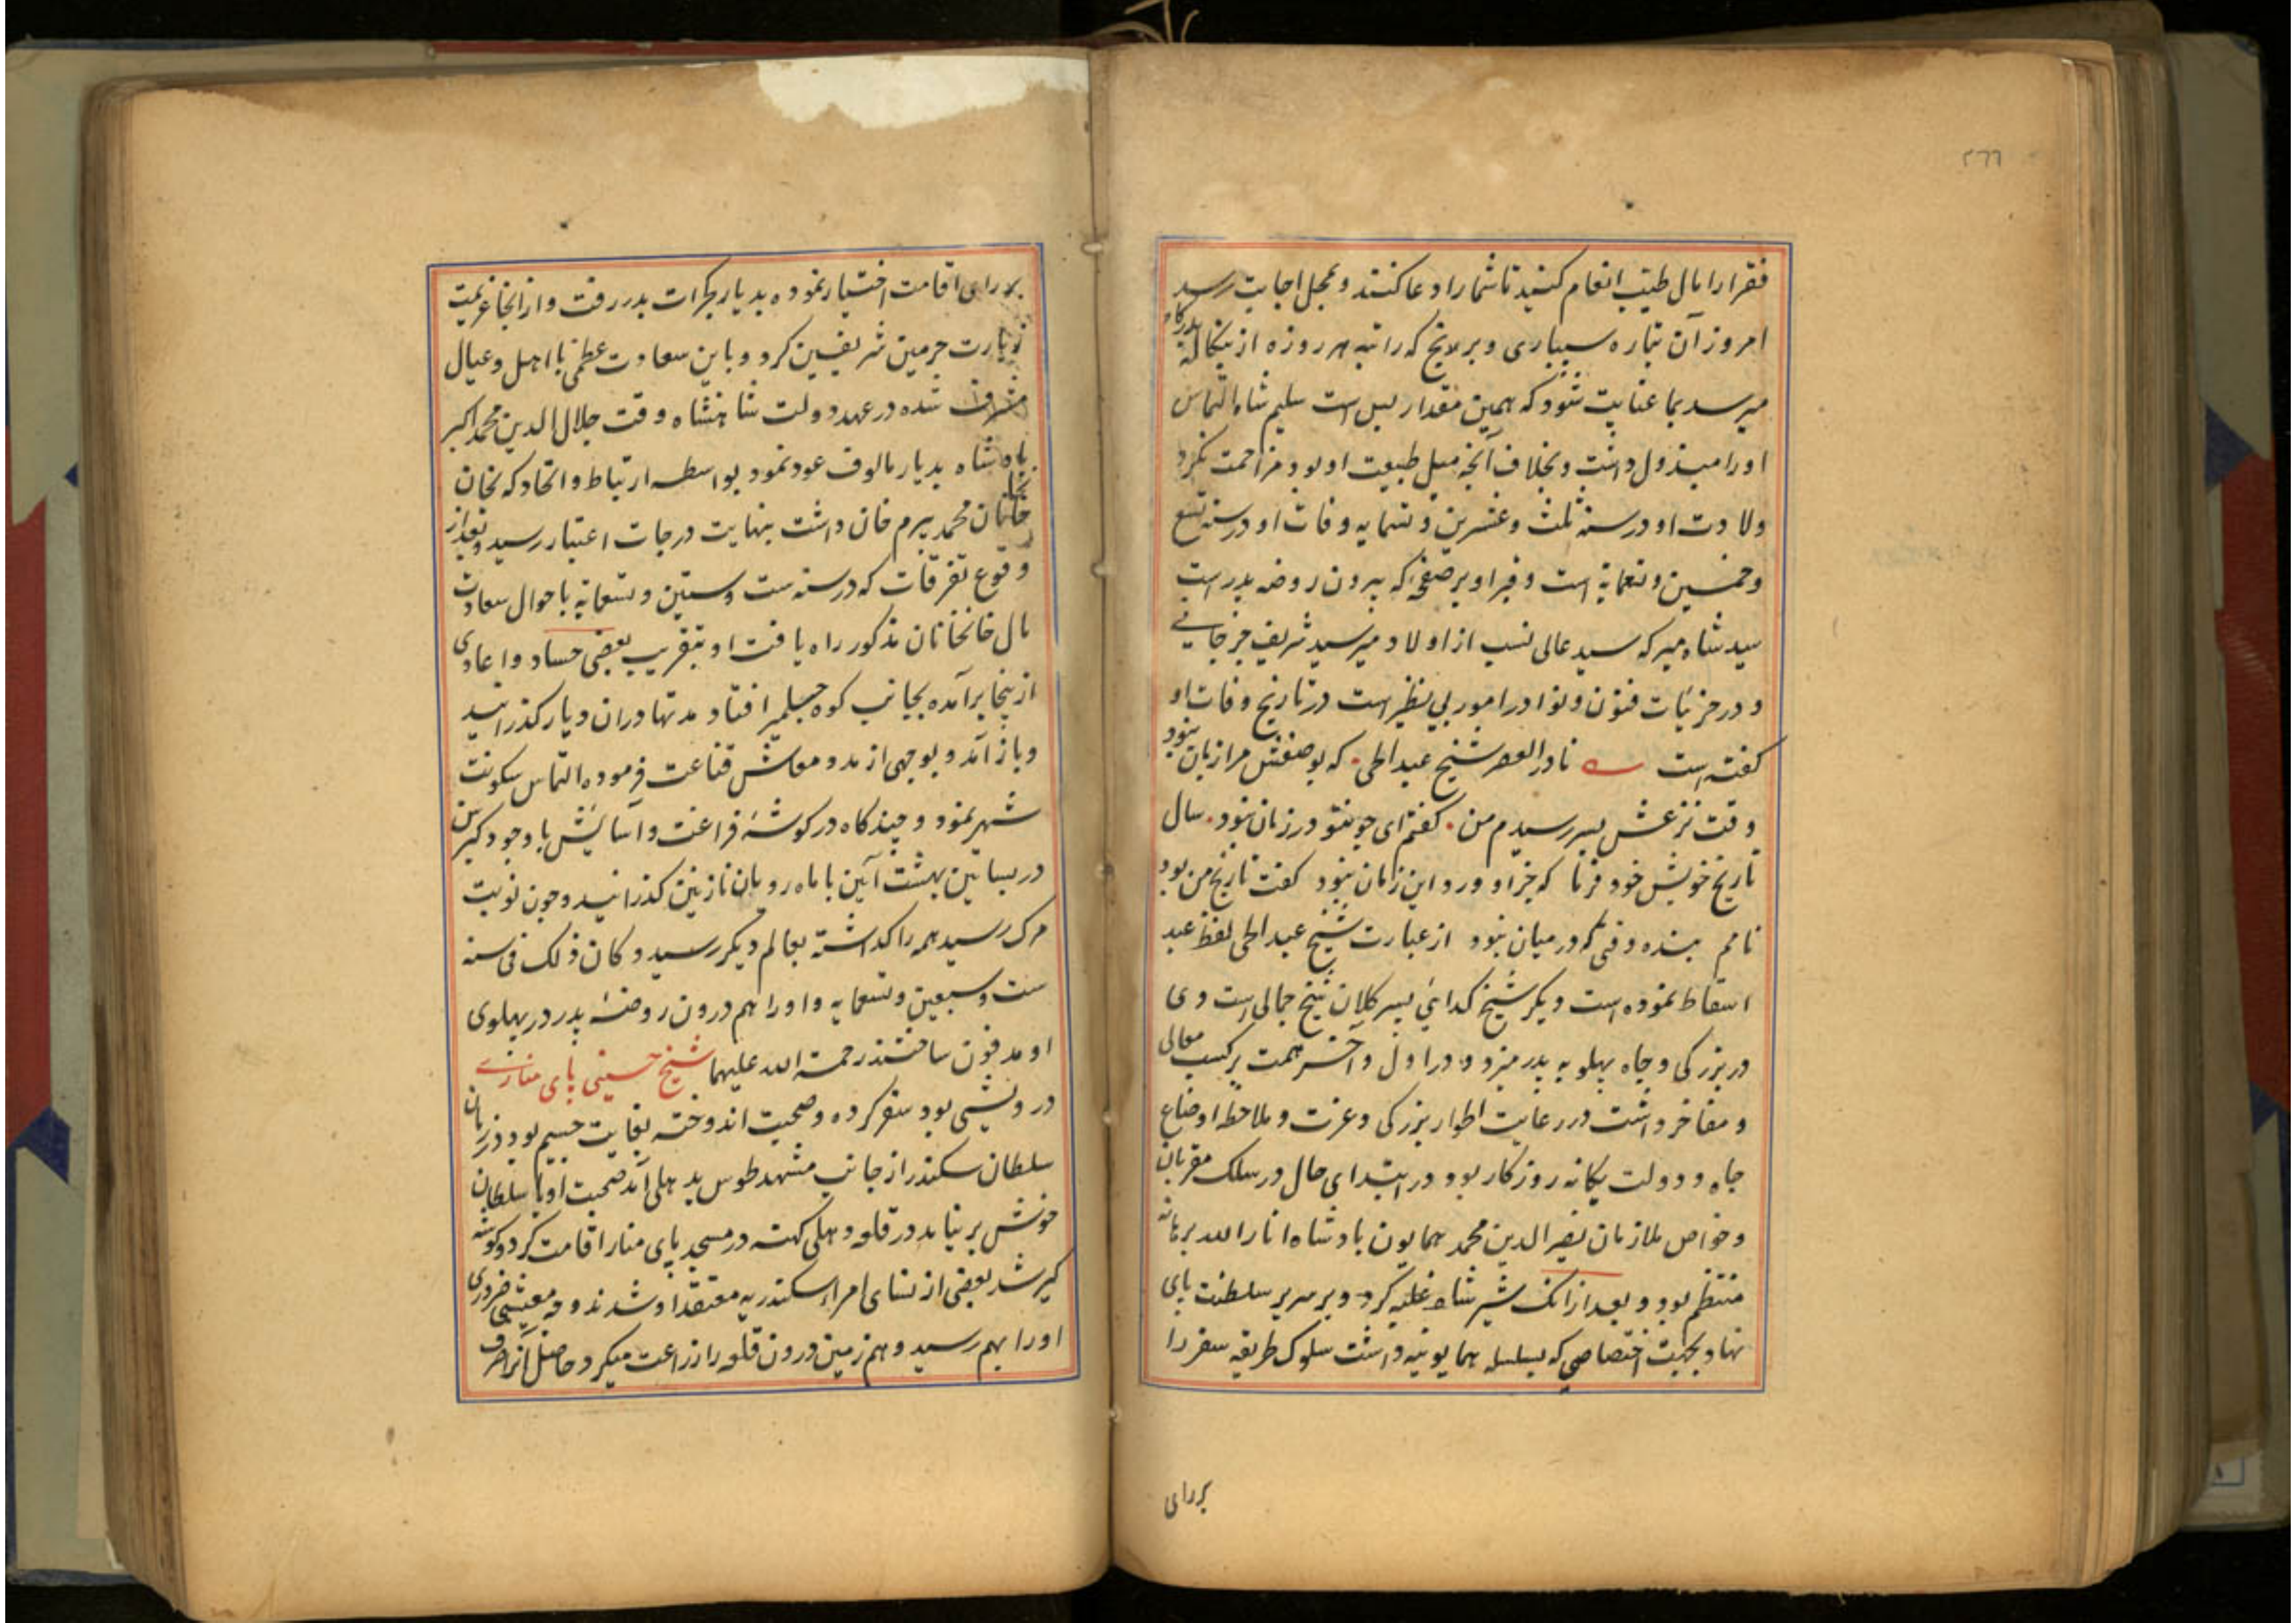 ٢٦٦
فقرا را بمال طیب انعام کنید تا شما را دعا کنند و بمحل اجابت رسد
امروز آن تباره سپاری و برلانج که راتبه هر روزه از بنکاله بدرکاه
میرسد بما عنایت شود که همین مقدار بس است سلیم شاه التماس
او را مبذول داشت و بخلاف آنچه میل طبیعت او بود مزاحمت نکرد
ولادت او در سنه ثلث و عشرین و تسعمایه وفات او در سنه تسع
و خمسین و تسعمایة است و قبر او بر صفه‌ٔ که بیرون روضه پدر است
سید شاه میر که سید عالی نسب از اولاد میر سید شریف جرجانی
و در جزئیات فنون و نوادر امور بی نظیر است در تاریخ وفات او
کفته است نادر العصر شیخ عبد الحی که بوصفش مرا زبان نبود
وقت نزعش بسر رسیدم من کفتم ای چو تو در زمان نبود سال
تاریخ خویش خود فرما که جز او ورد این زمان نبود کفت تاریخ من بود
نامم بنده وقتی که در میان نبود از عبارت شیخ عبد الحی لفظ عبد
اسقاط نموده است دیکر شیخ کدائی پسر کلان شیخ جمالی است وی
در بزرکی و جاه پهلو به پدر میزد و در اول و آخر همت بر کسب معالی
و مفاخر داشت در رعایت اطوار بزرکی و عزت و ملاحظه اوضاع
جاه و دولت یکانه روزکار بود در ابتدای حال در سلک مقربان
و خواص ملازمان نصیر الدین محمد همایون بادشاه انار الله برهانه
منتظم بود و بعد از انک شیر شاه غلبه کرد و بر سریر سلطنت پای
نهاد بجهت اختصاصی که بسلسله همایونیه داشت سلوک طریقه سفر را
بر رای
بر رای اقامت اختیار نموده بدیار بکرات بدر رفت و از انجا عزیمت
زیارت حرمین شریفین کرد و باین سعادت عظمی با اهل و عیال
مشرف شده در عهد دولت شاهنشاه وقت جلال الدین محمد اکبر
بادشاه بدیار مالوف عود نمود بواسطه ارتباط و اتحاد که بخان
خانخانان محمد بیرم خان داشت بنهایت درجات اعتبار رسید و بعد از
وقوع تفرقات که در سنه ست و ستین و تسعمایه باحوال سعادت
مال خانخانان مذکور راه یافت او بتقریب بعضی حساد و اعادی
از ینجا برآمده بجانب کوه جیلمیر افتاد مدتها دران دیار کذرانید
و باز آمد و بوجهی از مدد معاش قناعت فرموده التماس سکونت
شهر نمود و چند کاه در کوشهٔ فراغت و آسایش با وجود کبر سن
در بساتین بهشت آئین با ماه رویان نازنین کذرانید و چون نوبت
مرک رسید همه را کذاشته بعالم دیکر رسید و کان ذلک فی سنه
ست و سبعین و تسعمایه و او را هم درون روضهٔ پدر در پهلوی
او مدفون ساختند رحمة الله علیهما شیخ حسینی پای مناری
درویشی بود سفر کرده و صحبت اندوخته بغایت جسیم بود در زمان
سلطان سکندر از جانب مشهد طوس بدهلی آمد صحبت او با سلطان
خوش بر نیامد در قلعه دهلی کهنه در مسجد پای منار اقامت کرد و کوشه
کیر شد بعضی از نسای امراء سکندریه معتقد او شدند وجه معیشی ضروری
او را بهم رسید و هم زمین درون قلعه را زراعت میکرد و حاصل آنرا صرف